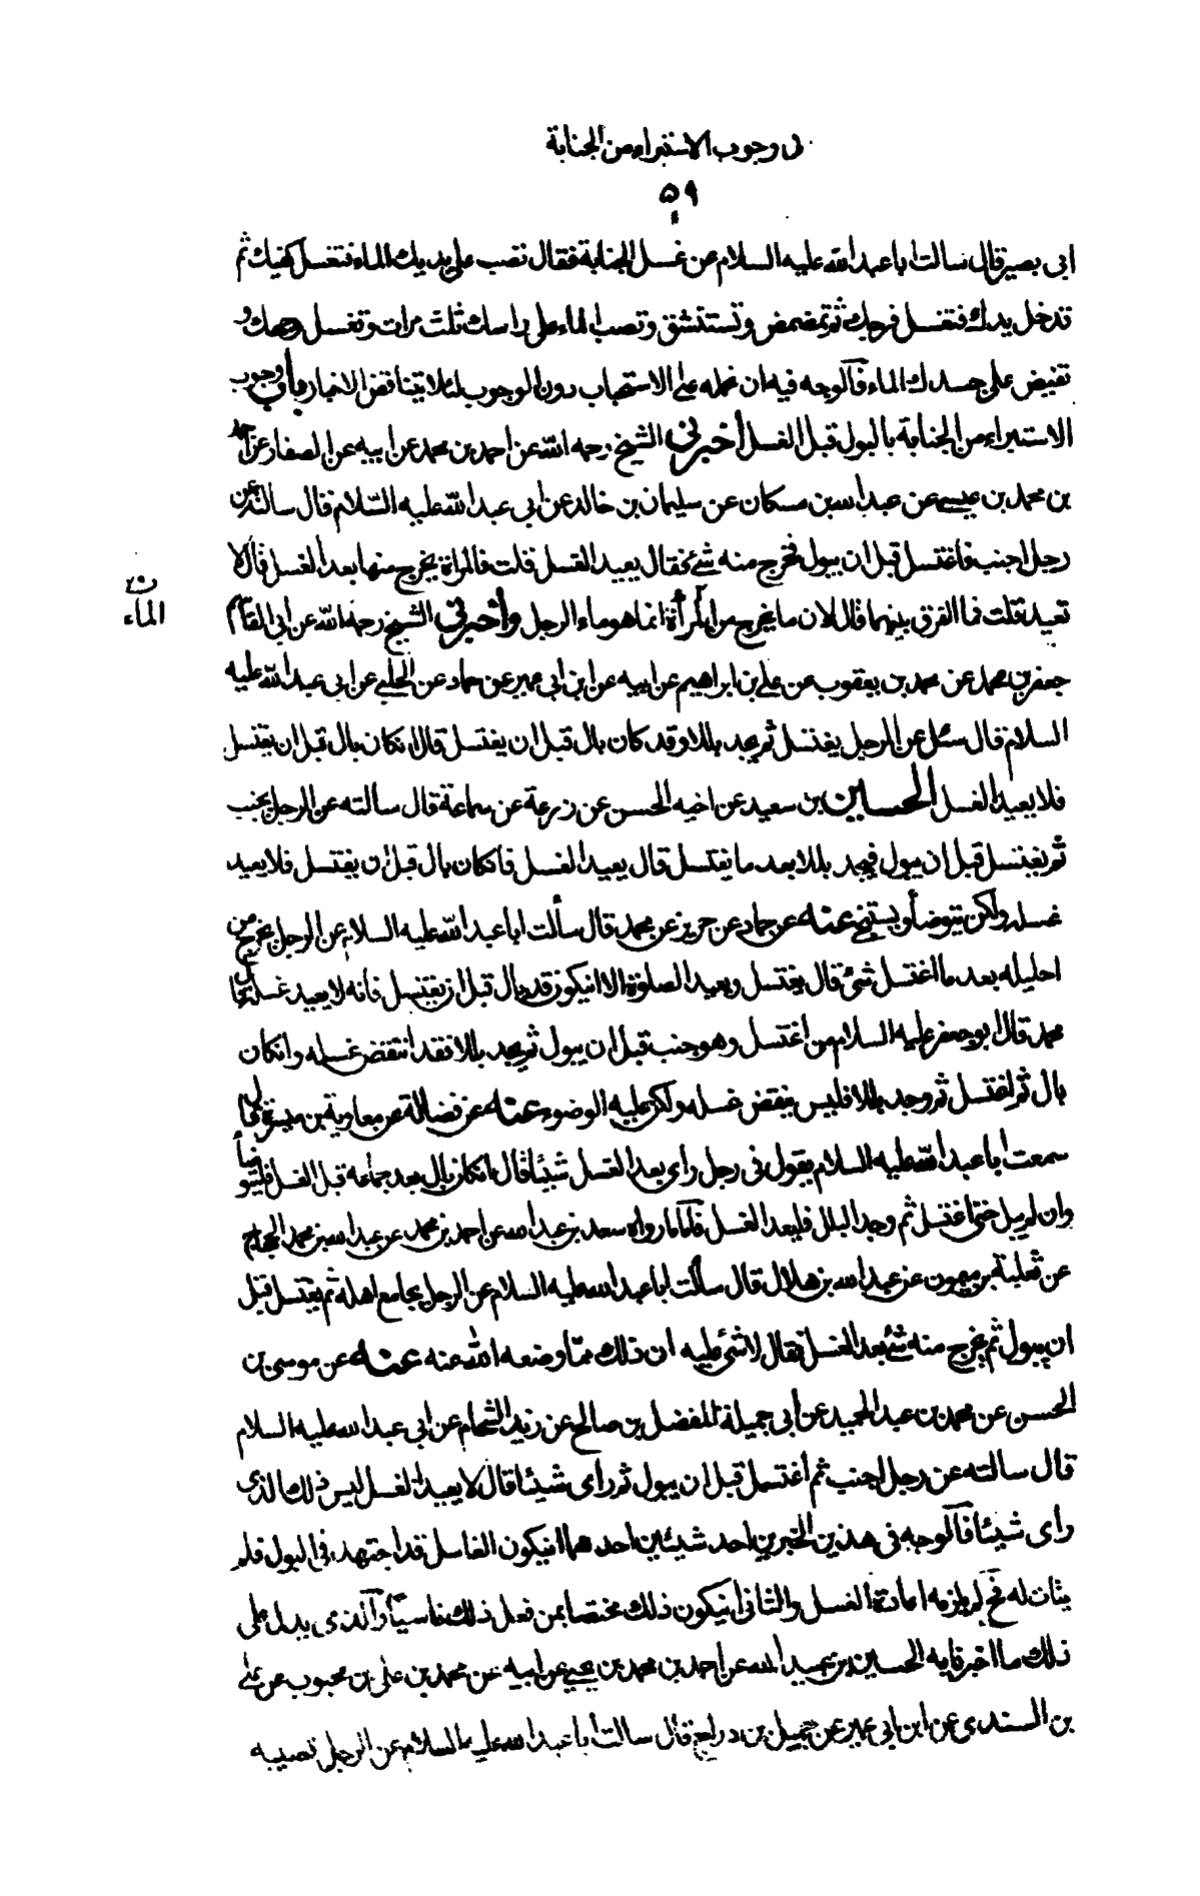 في وجوب الاستبراء من الجنابة
٥٩
ابى بصير قال سالت ابا عبد الله عليه السلام عن غسل الجنابة فقال تصب على يديك الماء فتغسل كفيك ثم
تدخل يدك فتغسل فرجك ثم تمضمض وتستنشق وتصب الماء على راسك ثلث مرات وتغسل وجهك و
تفيض على جسدك الماء فالوجه فيه ان نحمله على الاستحباب دون الوجوب لئلا يتناقض الاخبار باب وجوب
الاستبراء من الجنابة بالبول قبل الغسل أخبرني الشيخ رحمه الله عن احمد بن محمد عن ابيه عن الصفار عن احمد
بن محمد بن عيسى عن عبد الله بن مسكان عن سليمان بن خالد عن ابى عبد الله عليه السلام قال سالته عن
رجل اجنب فاغتسل قبل ان يبول فخرج منه شئ فقال يعيد الغسل قلت فالمراة يخرج منها بعد الغسل قال لا
تعيد قلت فما الفرق بينهما قال لان ما يخرج من المرأة انما هو ماء الرجل وأخبرني الشيخ رحمه الله عن ابى القاسم
ن
الماء
جعفر بن محمد عن محمد بن يعقوب عن على بن ابراهيم عن ابيه عن ابن ابى عمير عن حماد عن الحلبى عن ابى عبد الله عليه
السلام قال سئل عن الرجل يغتسل ثم يجد بللا وقد كان بال قبل ان يغتسل قال ان كان بال قبل ان يغتسل
فلا يعيد الغسل الحسين بن سعيد عن اخيه الحسن عن زرعة عن سماعة قال سالته عن الرجل يجنب
ثم يغتسل قبل ان يبول فيجد بللا بعد ما يغتسل قال يعيد الغسل فان كان بال قبل ان يغتسل فلا يعيد
غسله ولكن يتوضأ ويستنجى عنه عن حماد عن حريز عن محمد قال سألت ابا عبد الله عليه السلام عن الرجل يخرج من
احليله بعد ما اغتسل شئ قال يغتسل ويعيد الصلوة الا ان يكون قد بال قبل ان يغتسل فانه لا يعيد غسله قال
محمد قال ابو جعفر عليه السلام من اغتسل وهو جنب قبل ان يبول ثم يجد بللا فقد انتقض غسله وان كان
بال ثم اغتسل ثم وجد بللا فليس ينقض غسله ولكن عليه الوضوء عنه عن فضالة عن معاوية بن ميسرة قال
سمعت ابا عبد الله عليه السلام يقول فى رجل راى بعد الغسل شيئا قال ان كان بال بعد جماعه قبل الغسل فليتوضأ
وان لم يبل حتى اغتسل ثم وجد البلل فليعد الغسل فاما ما رواه سعد بن عبد الله عن احمد بن محمد عن عبد الله بن محمد الحجال
عن ثعلبة بن ميمون عن عبد الله بن هلال قال سألت ابا عبد الله عليه السلام عن الرجل يجامع اهله ثم يغتسل قبل
ان يبول ثم يخرج منه شئ بعد الغسل فقال لا شئ عليه ان ذلك مما وضعه الله عنه عنه عن موسى بن
الحسن عن محمد بن عبد الحميد عن أبى جميلة المفضل بن صالح عن زيد الشحام عن ابى عبد الله عليه السلام
قال سالته عن رجل اجنب ثم اغتسل قبل ان يبول ثم راى شيئا قال لا يعيد الغسل ليس ذلك الذى
راى شيئا فالوجه فى هذين الخبرين احد شيئين احدهما ان يكون الغاسل قد اجتهد فى البول فلم
يتات له فح لم يلزمه اعادة الغسل والثانى ان يكون ذلك مختصا بمن فعل ذلك ناسيا والذى يدل على
ذلك ما اخبرنا به الحسين بن عبيد الله عن احمد بن محمد بن يحيى عن ابيه عن محمد بن على بن محبوب عن على
بن السندى عن ابن ابى عمير عن جميل بن دراج قال سالت أبا عبد الله عليه السلام عن الرجل تصيبه